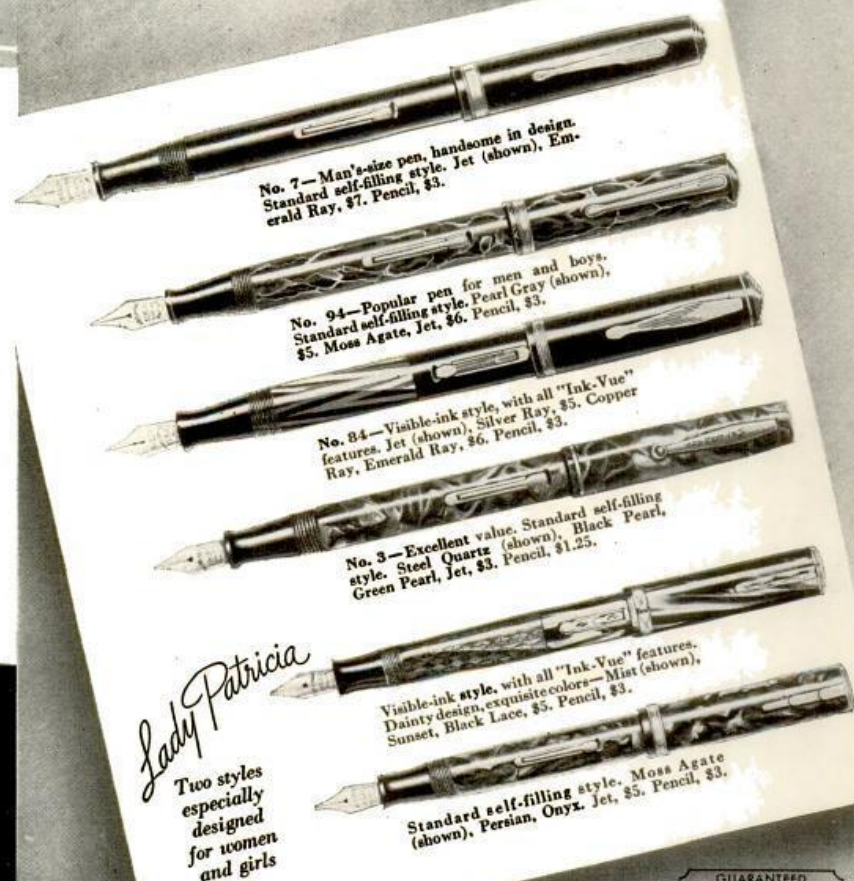 No. 7—Man's-size pen, handsome in design.
Standard self-filling style. Jet (shown), Em-
erald Ray, $7. Pencil, $3.
No. 94—Popular pen for men and boys.
Standard self-filling style. Pearl Gray (shown),
$5. Moss Agate, Jet, $6. Pencil, $3.
No. 84—Visible-ink style, with all "Ink-Vue"
features. Jet (shown), Silver Ray, $5. Copper
Ray, Emerald Ray, $6. Pencil, $3.
No. 3—Excellent value. Standard self-filling
style. Steel Quartz (shown), Black Pearl,
Green Pearl, Jet, $3. Pencil, $1.25.
Lady Patricia
Two styles
especially
designed
for women
and girls
Visible-ink style, with all "Ink-Vue" features.
Dainty design, exquisite colors—Mist (shown),
Sunset, Black Lace, $5. Pencil, $3.
Standard self-filling style. Moss Agate
(shown), Persian, Onyx. Jet, $5. Pencil, $3.
GUARANTEED